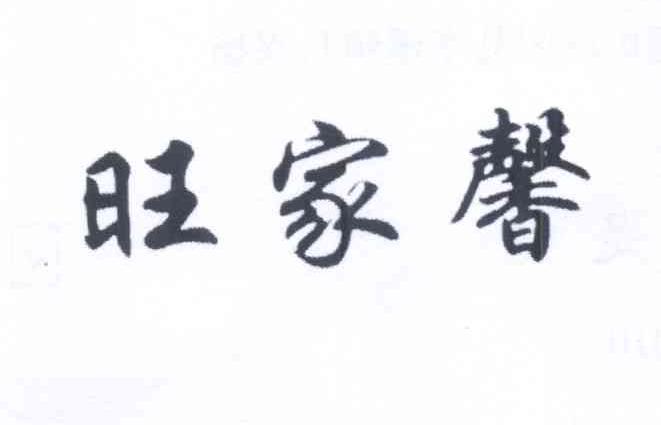 旺家馨